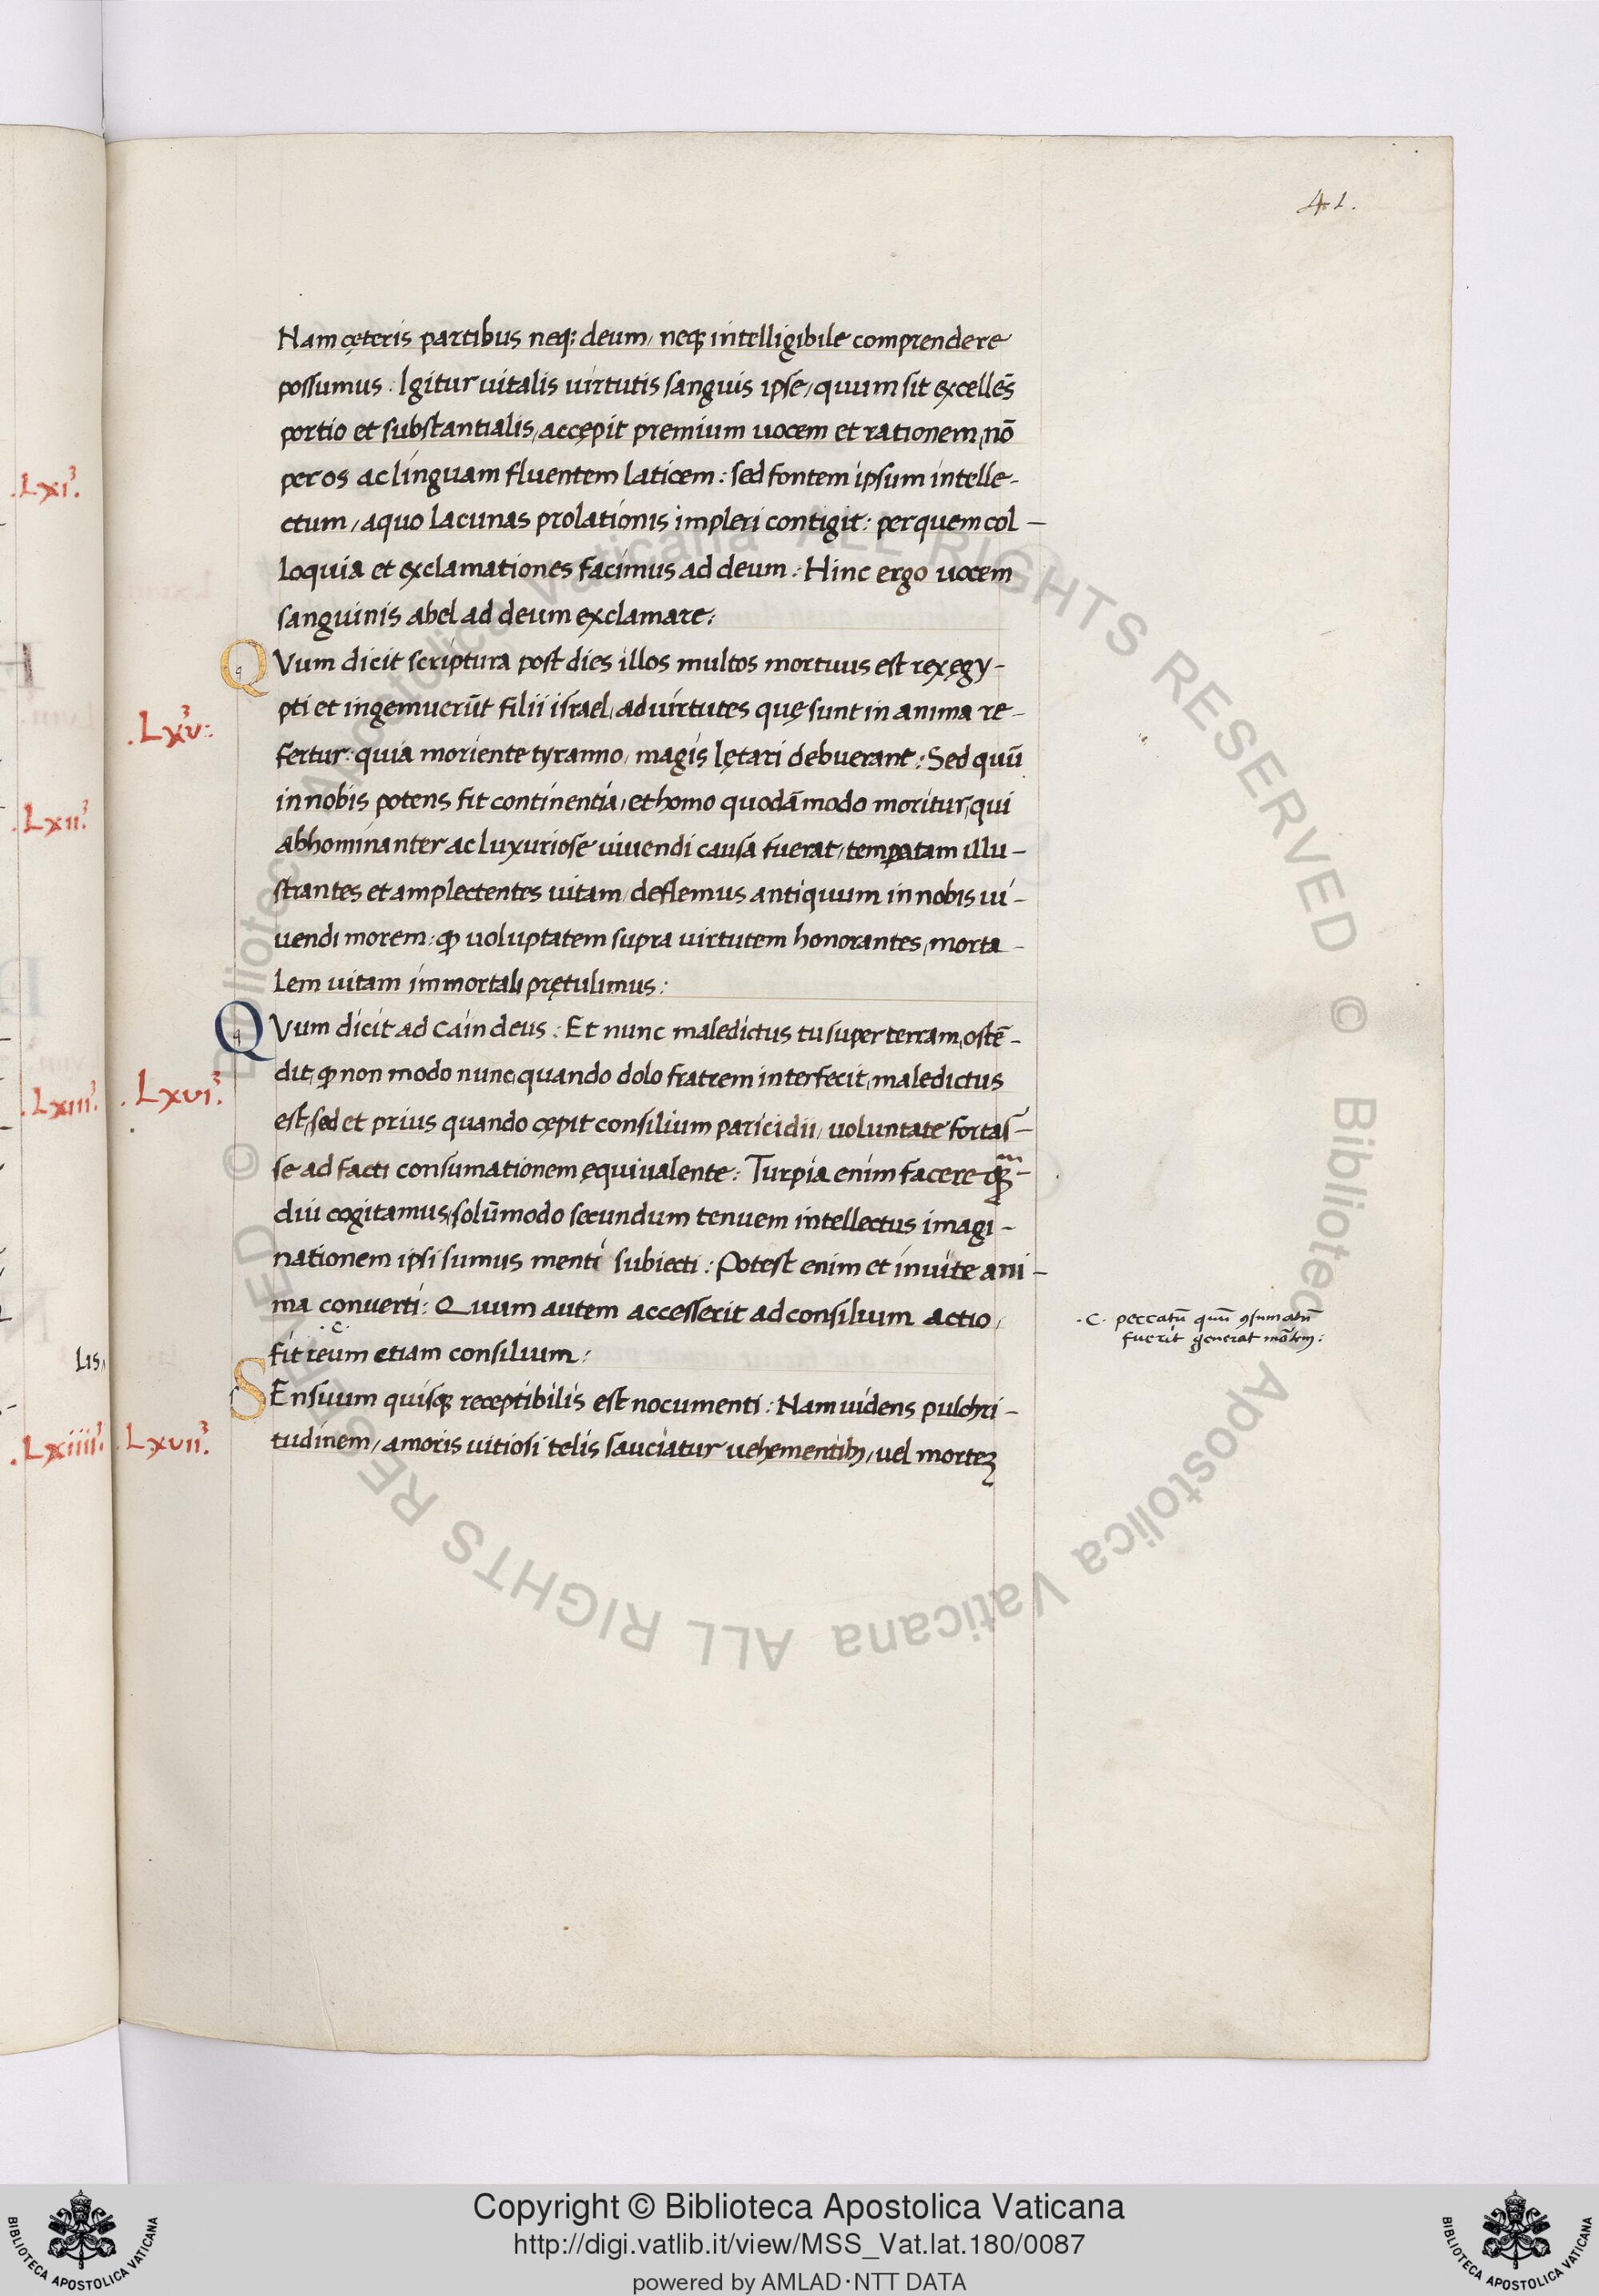 41.
Nam cęteris partibus neq; deum, neq; intelligibile comprendere
possumus. Igitur uitalis uirtutis sanguis ipse, quum sit excellēs
portio et substantialis, accępit premium uocem et rationem, nō
per os ac linguam fluentem laticem: sed fontem ipsum intelle-
ctum, a quo lacunas prolationis impleri contigit: per quem col-
loquia et exclamationes facimus ad deum: Hinc ergo uocem
sanguinis abel ad deum exclamare:
.Lxv:³
QVum dicit scriptura post dies illos multos mortuus est rex ęgy-
pti et ingemuerūt filii israel, ad uirtutes quę sunt in anima re-
fertur: quia moriente tyranno, magis lętari debuerant: Sed quū
in nobis potens fit continentia, et homo quodāmodo moritur, qui
abhominanter ac luxuriose uiuendi causa fuerat, temꝑatam illu-
strantes et amplectentes uitam, deflemus antiquum in nobis ui-
uendi morem: ꝙ uoluptatem supra uirtutem honorantes, morta-
lem uitam immortali prętulimus:
.Lxvi.³
QVum dicit ad Cain deus: Et nunc maledictus tu super terram, ostē-
dit, ꝙ non modo nunc, quando dolo fratrem interfecit, maledictus
est, sed et prius quando cępit consilium paricidii, uoluntate fortas-
se ad facti consumationem ęquiualente: Turpia enim facere qᵐ-
diu cogitamus, solūmodo secundum tenuem intellectus imagi-
nationem ipsi sumus menti subiecti: Potest enim et inuite ani-
ma conuerti: Quum autem accesserit ad consilium actio,
.C.
fit reum etiam consilium:
.C. peccatū quū ꝯsumatū
fuerit generat mōrtem:
.Lxvii.³
SEnsuum quisq; receptibilis est nocumenti: Nam uidens pulchri-
tudinem, amoris uitiosi telis sauciatur uehementibꝫ, uel morteꝫ
.Lxi.³
.Lxii.³
.Lxiii.³
lis,
.Lxiiii.³
Copyright © Biblioteca Apostolica Vaticana
http://digi.vatlib.it/view/MSS_Vat.lat.180/0087
powered by AMLAD·NTT DATA
BIBLIOTECA APOSTOLICA VATICANA
BIBLIOTECA APOSTOLICA VATICANA
© Biblioteca Apostolica Vaticana ALL RIGHTS RESERVED
© Biblioteca Apostolica Vaticana ALL RIGHTS RESERVED